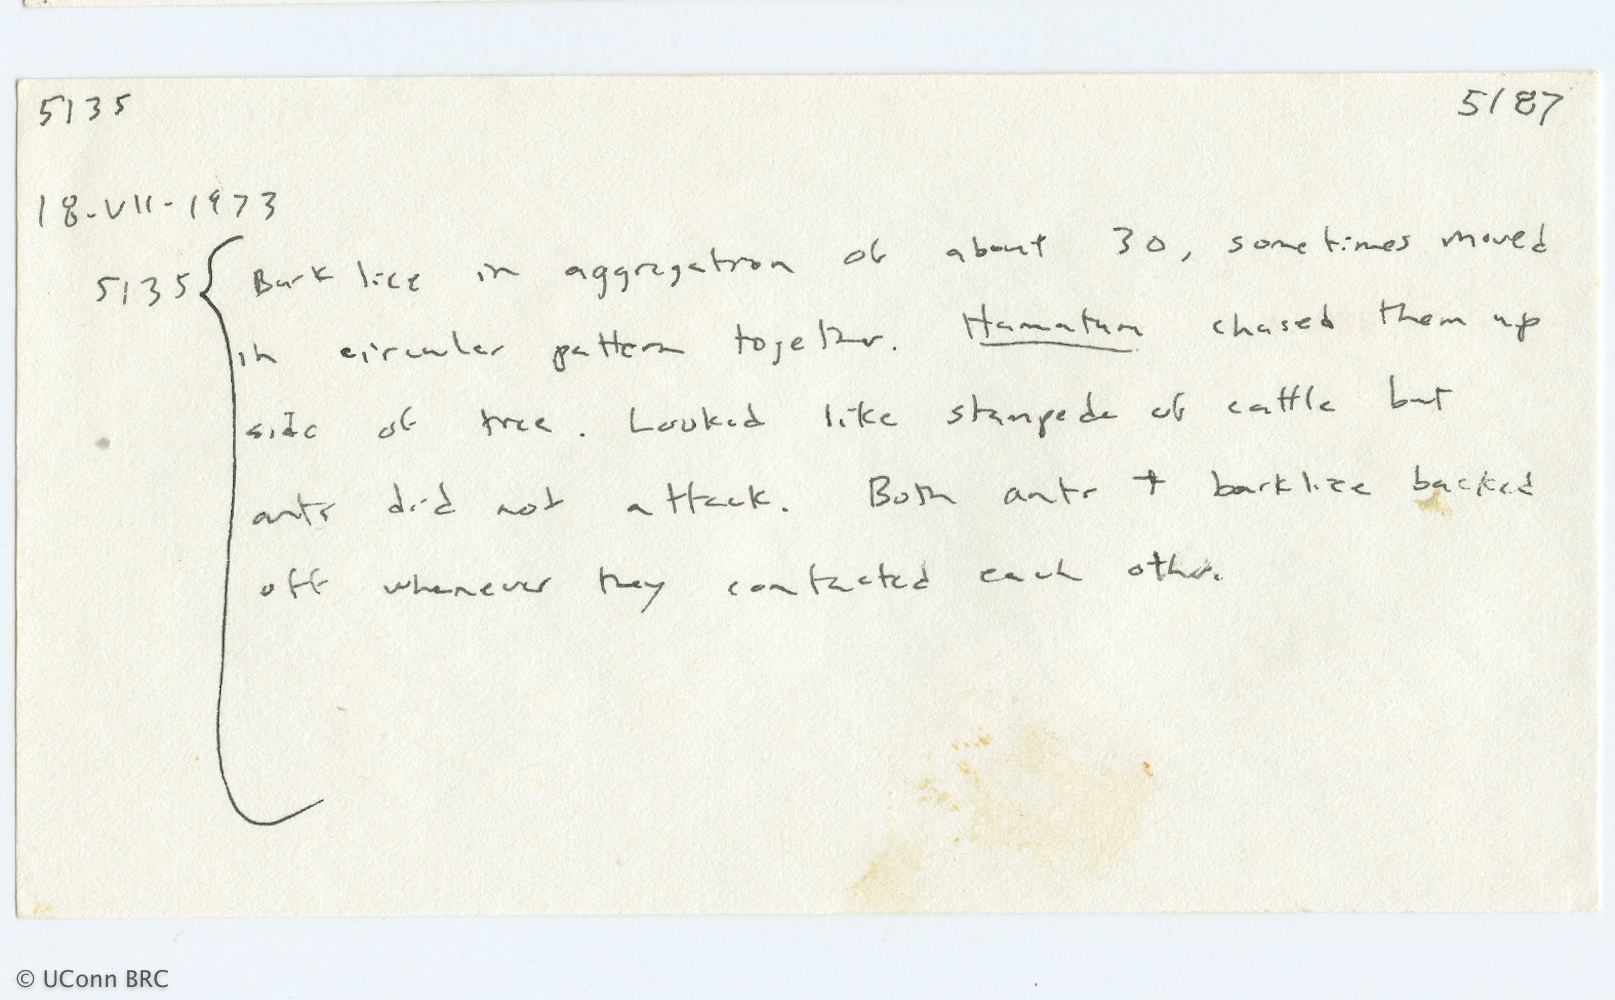 5135 5187
18-VII-1973
5135 { Bark lice in aggregation of about 30, sometimes moved
in circular pattern together. Hamatum chased them up
side of tree. Looked like stampede of cattle but
ants did not attack. Both ants + barklice backed
off whenever they contacted each other.
© UConn BRC